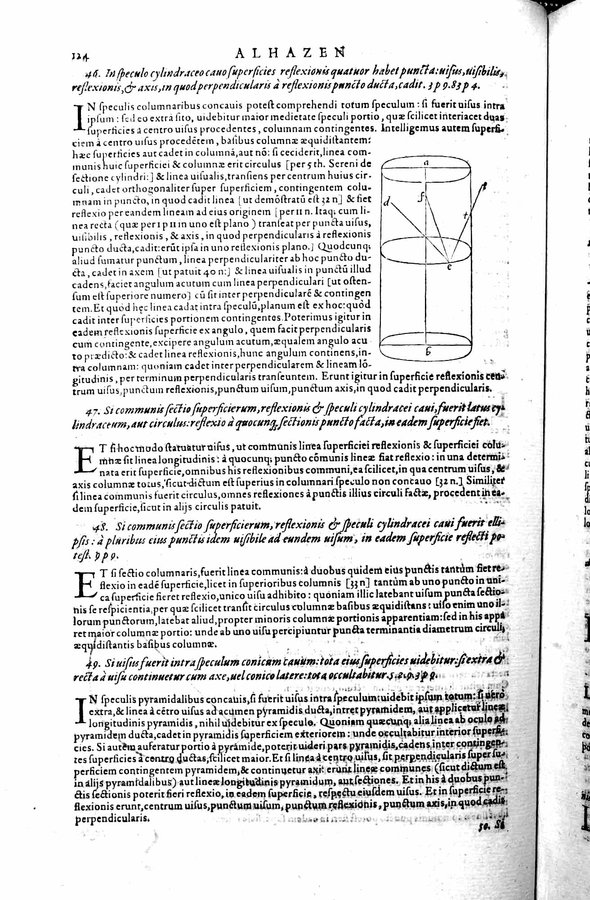 124
ALHAZEN
46. In speculo cylindraceo cauo superficies reflexionis quatuor habet puncta: uisus, uisibilis,
reflexionis, & axis, in quod perpendicularis à reflexionis puncto ducta, cadit. 3 p 9. 83 p 4.
IN speculis columnaribus concauis potest comprehendi totum speculum: si fuerit uisus intra
ipsum: sed eo extra sito, uidebitur maior medietate speculi portio, quæ scilicet interiacet duas
superficies à centro uisus procedentes, columnam contingentes. Intelligemus autem superfi-
ciem à centro uisus procedẽtem, basibus columnæ æquidistantem:
hæc superficies aut cadet in columnã, aut nõ: si ceciderit, linea com-
munis huic superficiei & columnæ erit circulus [per 5 th. Sereni de
sectione cylindri:] & linea uisualis, transiens per centrum huius cir-
culi, cadet orthogonaliter super superficiem, contingentem colu-
mnam in puncto, in quod cadit linea [ut demõstratũ est 32 n] & fiet
reflexio per eandem lineam ad eius originem [per 11 n. Itaq; cum li-
nea recta (quæ per 1 p 11 in uno est plano) transeat per puncta uisus,
uisibilis, reflexionis, & axis, in quod perpendicularis à reflexionis
puncto ducta, cadit: erũt ipsa in uno reflexionis plano.] Quodcunq;
aliud sumatur punctum, linea perpendiculariter ab hoc puncto du-
cta, cadet in axem [ut patuit 40 n:] & linea uisualis in punctũ illud
cadens, faciet angulum acutum cum linea perpendiculari [ut osten-
sum est superiore numero] cũ sit inter perpendicularẽ & contingen
tem. Et quòd hęc linea cadat intra speculũ, planum est ex hoc: quòd
cadit inter superficies portionem contingentes. Poterimus igitur in
eadem reflexionis superficie ex angulo, quem facit perpendicularis
cum contingente, excipere angulum acutum, æqualem angulo acu
to prædicto: & cadet linea reflexionis, hunc angulum continens, in-
tra columnam: quoniam cadet inter perpendicularem & lineam lõ-
gitudinis, per terminum perpendicularis transeuntem. Erunt igitur in superficie reflexionis cen-
trum uisus, punctum reflexionis, punctum uisum, punctum axis, in quod cadit perpendicularis.
a
f
d
t
e
b
47. Si communis sectio superficierum, reflexionis & speculi cylindracei caui, fuerit latus cy-
lindraceum, aut circulus: reflexio à quocunq, sectionis puncto facta, in eadem superficie fiet.
ET si hoc modo statuatur uisus, ut communis linea superficiei reflexionis & superficiei colu-
mnæ sit linea longitudinis: à quocunq; puncto cõmunis lineæ fiat reflexio: in una determi-
nata erit superficie, omnibus his reflexionibus communi, ea scilicet, in qua centrum uisus, &
axis columnæ totus, sicut dictum est superius in columnari speculo non concauo [32 n.] Similiter
si linea communis fuerit circulus, omnes reflexiones à punctis illius circuli factæ, procedent in ea-
dem superficie, sicut in alijs circulis patuit.
48. Si communis sectio superficierum, reflexionis & speculi cylindracei caui fuerit elli-
psis: à pluribus eius punctis idem uisibile ad eundem uisum, in eadem superficie reflecti po-
test. p p 9.
ET si sectio columnaris, fuerit linea communis: à duobus quidem eius punctis tantùm fiet re-
flexio in eadẽ superficie, licet in superioribus columnis [33 n] tantùm ab uno puncto in uni-
ca superficie fieret reflexio, unico uisu adhibito: quoniam illic latebant uisum puncta sectio-
nis se respicientia, per quæ scilicet transit circulus columnæ basibus æquidistans: uiso enim uno il-
lorum punctorum, latebat aliud, propter minoris columnæ portionis apparentiam: sed in his appa
ret maior columnæ portio: unde ab uno uisu percipiuntur puncta terminantia diametrum circuli,
æquidistantis basibus columnæ.
49. Si uisus fuerit intra speculum conicum cauum: tota eius superficies uidebitur: si extra &
recta à uisu continuetur cum axe, uel conico latere: tota occultabitur. 5. 2. p. 3 p 9.
IN speculis pyramidalibus concauis, si fuerit uisus intra speculum: uidebit ipsum totum: si uerò
extra, & linea à cẽtro uisus ad acumen pyramidis ducta, intret pyramidem, aut applicetur lineæ
longitudinis pyramidis, nihil uidebitur ex speculo. Quoniam quæcunq; alia linea ab oculo ad
pyramidem ducta, cadet in pyramidis superficiem exteriorem: unde occultabitur interior superfi-
cies. Si autem auferatur portio à pyramide, poterit uideri pars pyramidis, cadens inter contingen-
tes superficies à centro ductas, scilicet maior. Et si linea à centro uisus, sit perpendicularis super su-
perficiem contingentem pyramidem, & continuetur axi: erunt lineæ communes (sicut dictum est
in alijs pyramidalibus) aut lineæ longitudinis pyramidum, aut sectiones. Et in his à duobus pun-
ctis sectionis poterit fieri reflexio, in eadem superficie, respectu eiusdem uisus. Et in superficie re-
flexionis erunt, centrum uisus, punctum uisum, punctum reflexionis, punctum axis, in quod cadit
perpendicularis.
50. Si